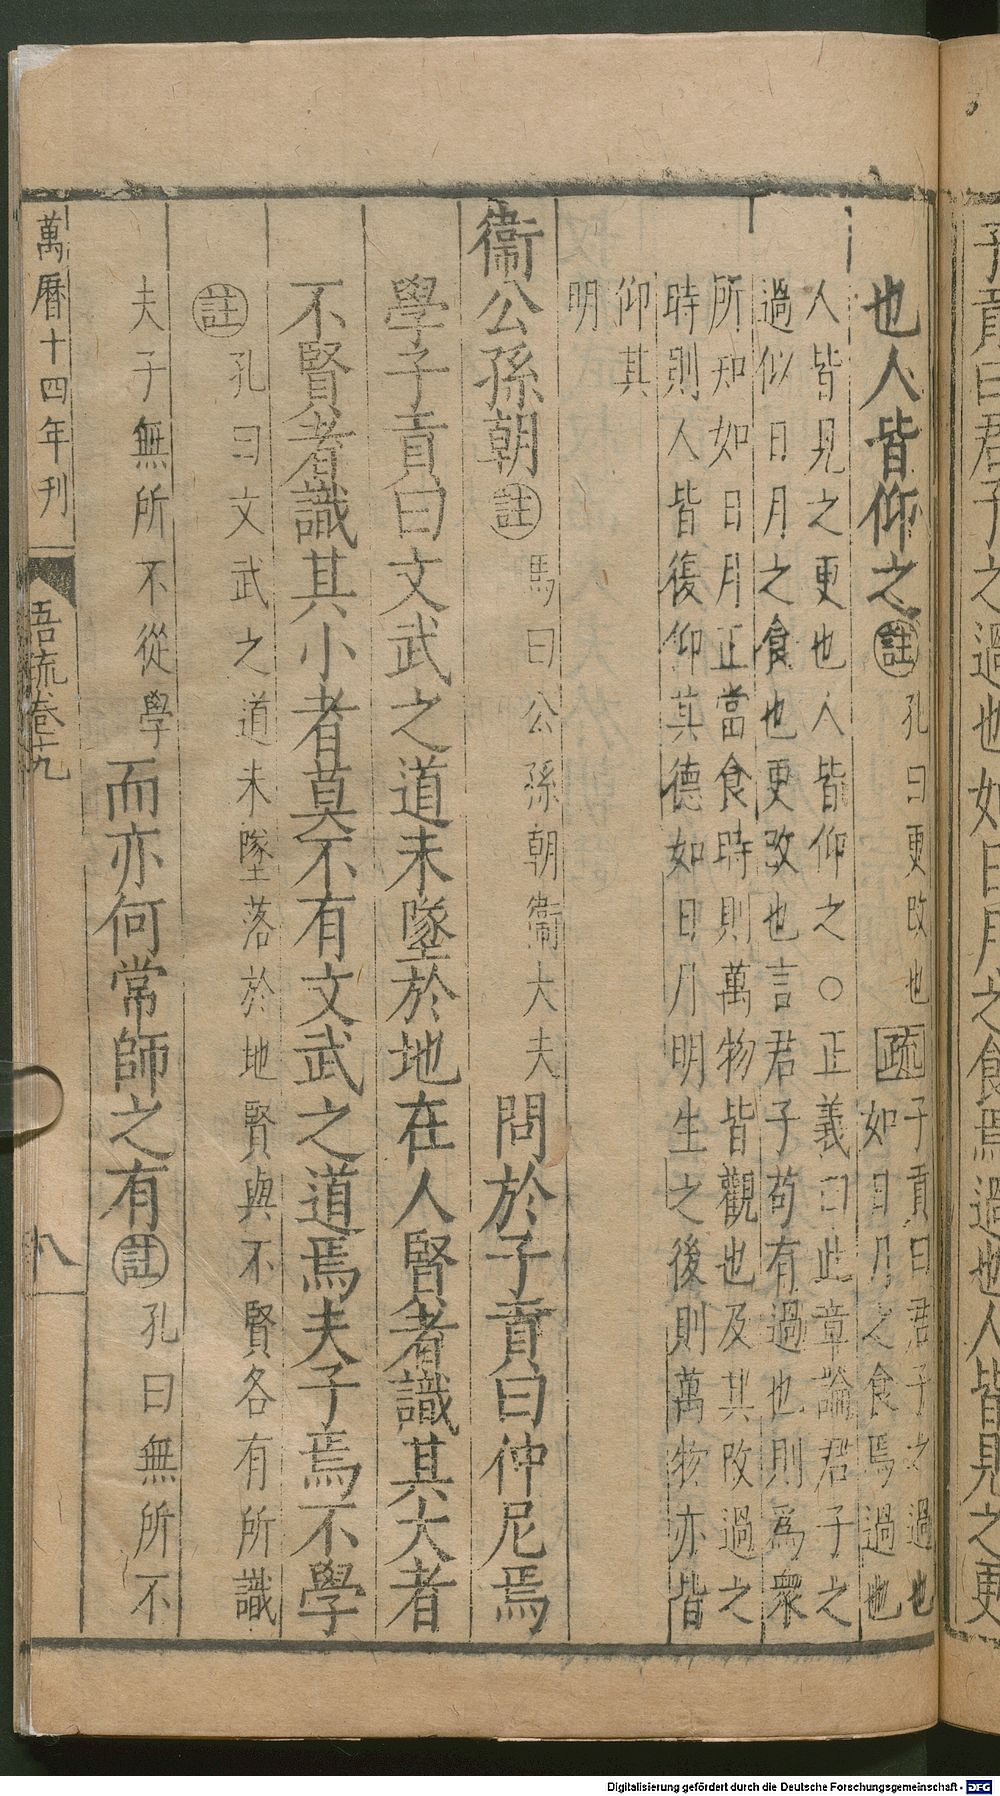 子貢曰君子之過也如日月之食焉過也人皆見之更
也人皆仰之註孔曰更改也疏子貢曰君子之過也
如日月之食焉過也
人皆見之更也人皆仰之○正義曰此章論君子之
過似日月之食也更改也言君子苟有過也則爲衆
所知如日月正當食時則萬物皆觀也及其改過之
時則人皆復仰其德如日月明生之後則萬物亦皆
仰其
明
衞公孫朝註馬曰公孫朝衞大夫問於子貢曰仲尼焉
學子貢曰文武之道未墜於地在人賢者識其大者
不賢者識其小者莫不有文武之道焉夫子焉不學
註孔曰文武之道未墜落於地賢與不賢各有所識
夫子無所不從學而亦何常師之有註孔曰無所不
萬曆十四年刊 語疏卷十九 八
Digitalisierung gefördert durch die Deutsche Forschungsgemeinschaft - DFG